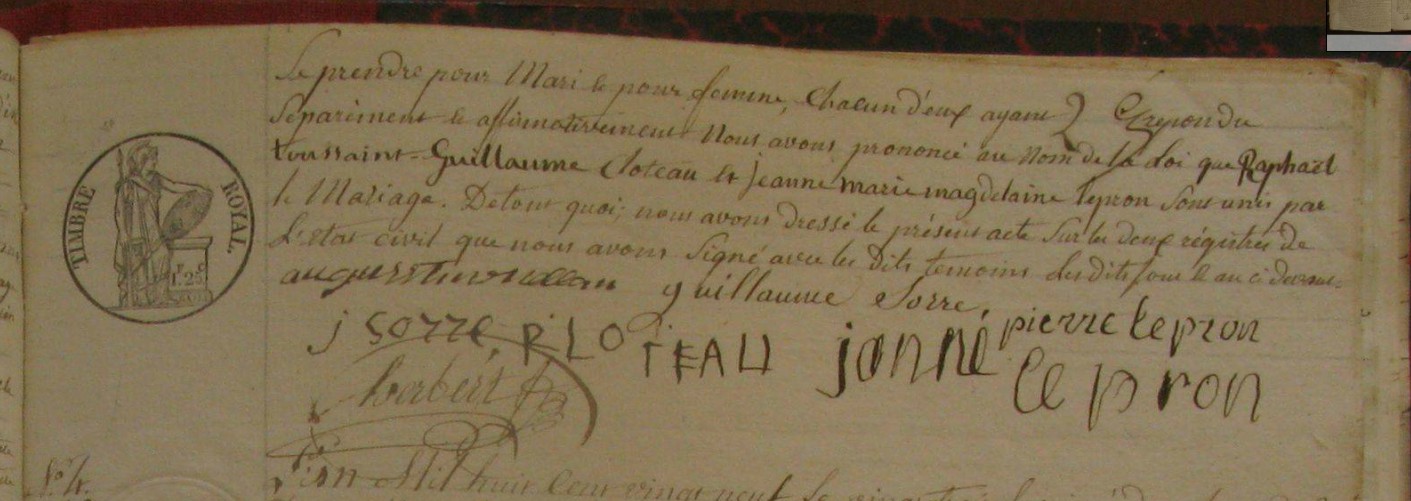 Se prendre pour Mari & pour femme, Chacun d'eux ayant Repondu
Séparément & affirmativement Nous avons prononcé au Nom de la Loi que Raphaël
toussaint-Guillaume Cloteau et jeanne marie magdelaine lepron Sont unis par
le Mariage. De tout quoi, nous avons dressé le présent acte Sur les deux régistres de
L'état civil que nous avons Signé avec les Dits temoins
TIMBRE ROYAL.
F. C.
1.25
guillaume Sorre
j sorre, R LOTEAU janne pierre lepron
le pron
L'an Mil huit Cent vingt neuf le vingt